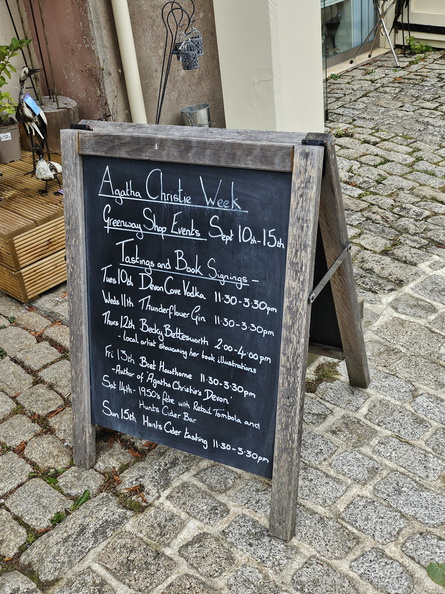 Agatha Christie Week
Greenway Shop Events Sept 10th-15th
Tastings and Book Signings -
Tues 10th Devon Cove Vodka 11:30-3:30pm
Weds 11th Thunderflower Gin 11:30-3:30pm
Thurs 12th Becky Bettesworth 2:00-4:00pm
- local artist showcasing her book illustrations
Fri 13th Bret Hawthorne 11:30-3:30pm
- Author of 'Agatha Christie's Devon'
Sat 14th - 1950's fete with Retail Tombola and
Hunts Cider Bar
Sun 15th Hunts Cider tasting 11:30-3:30pm